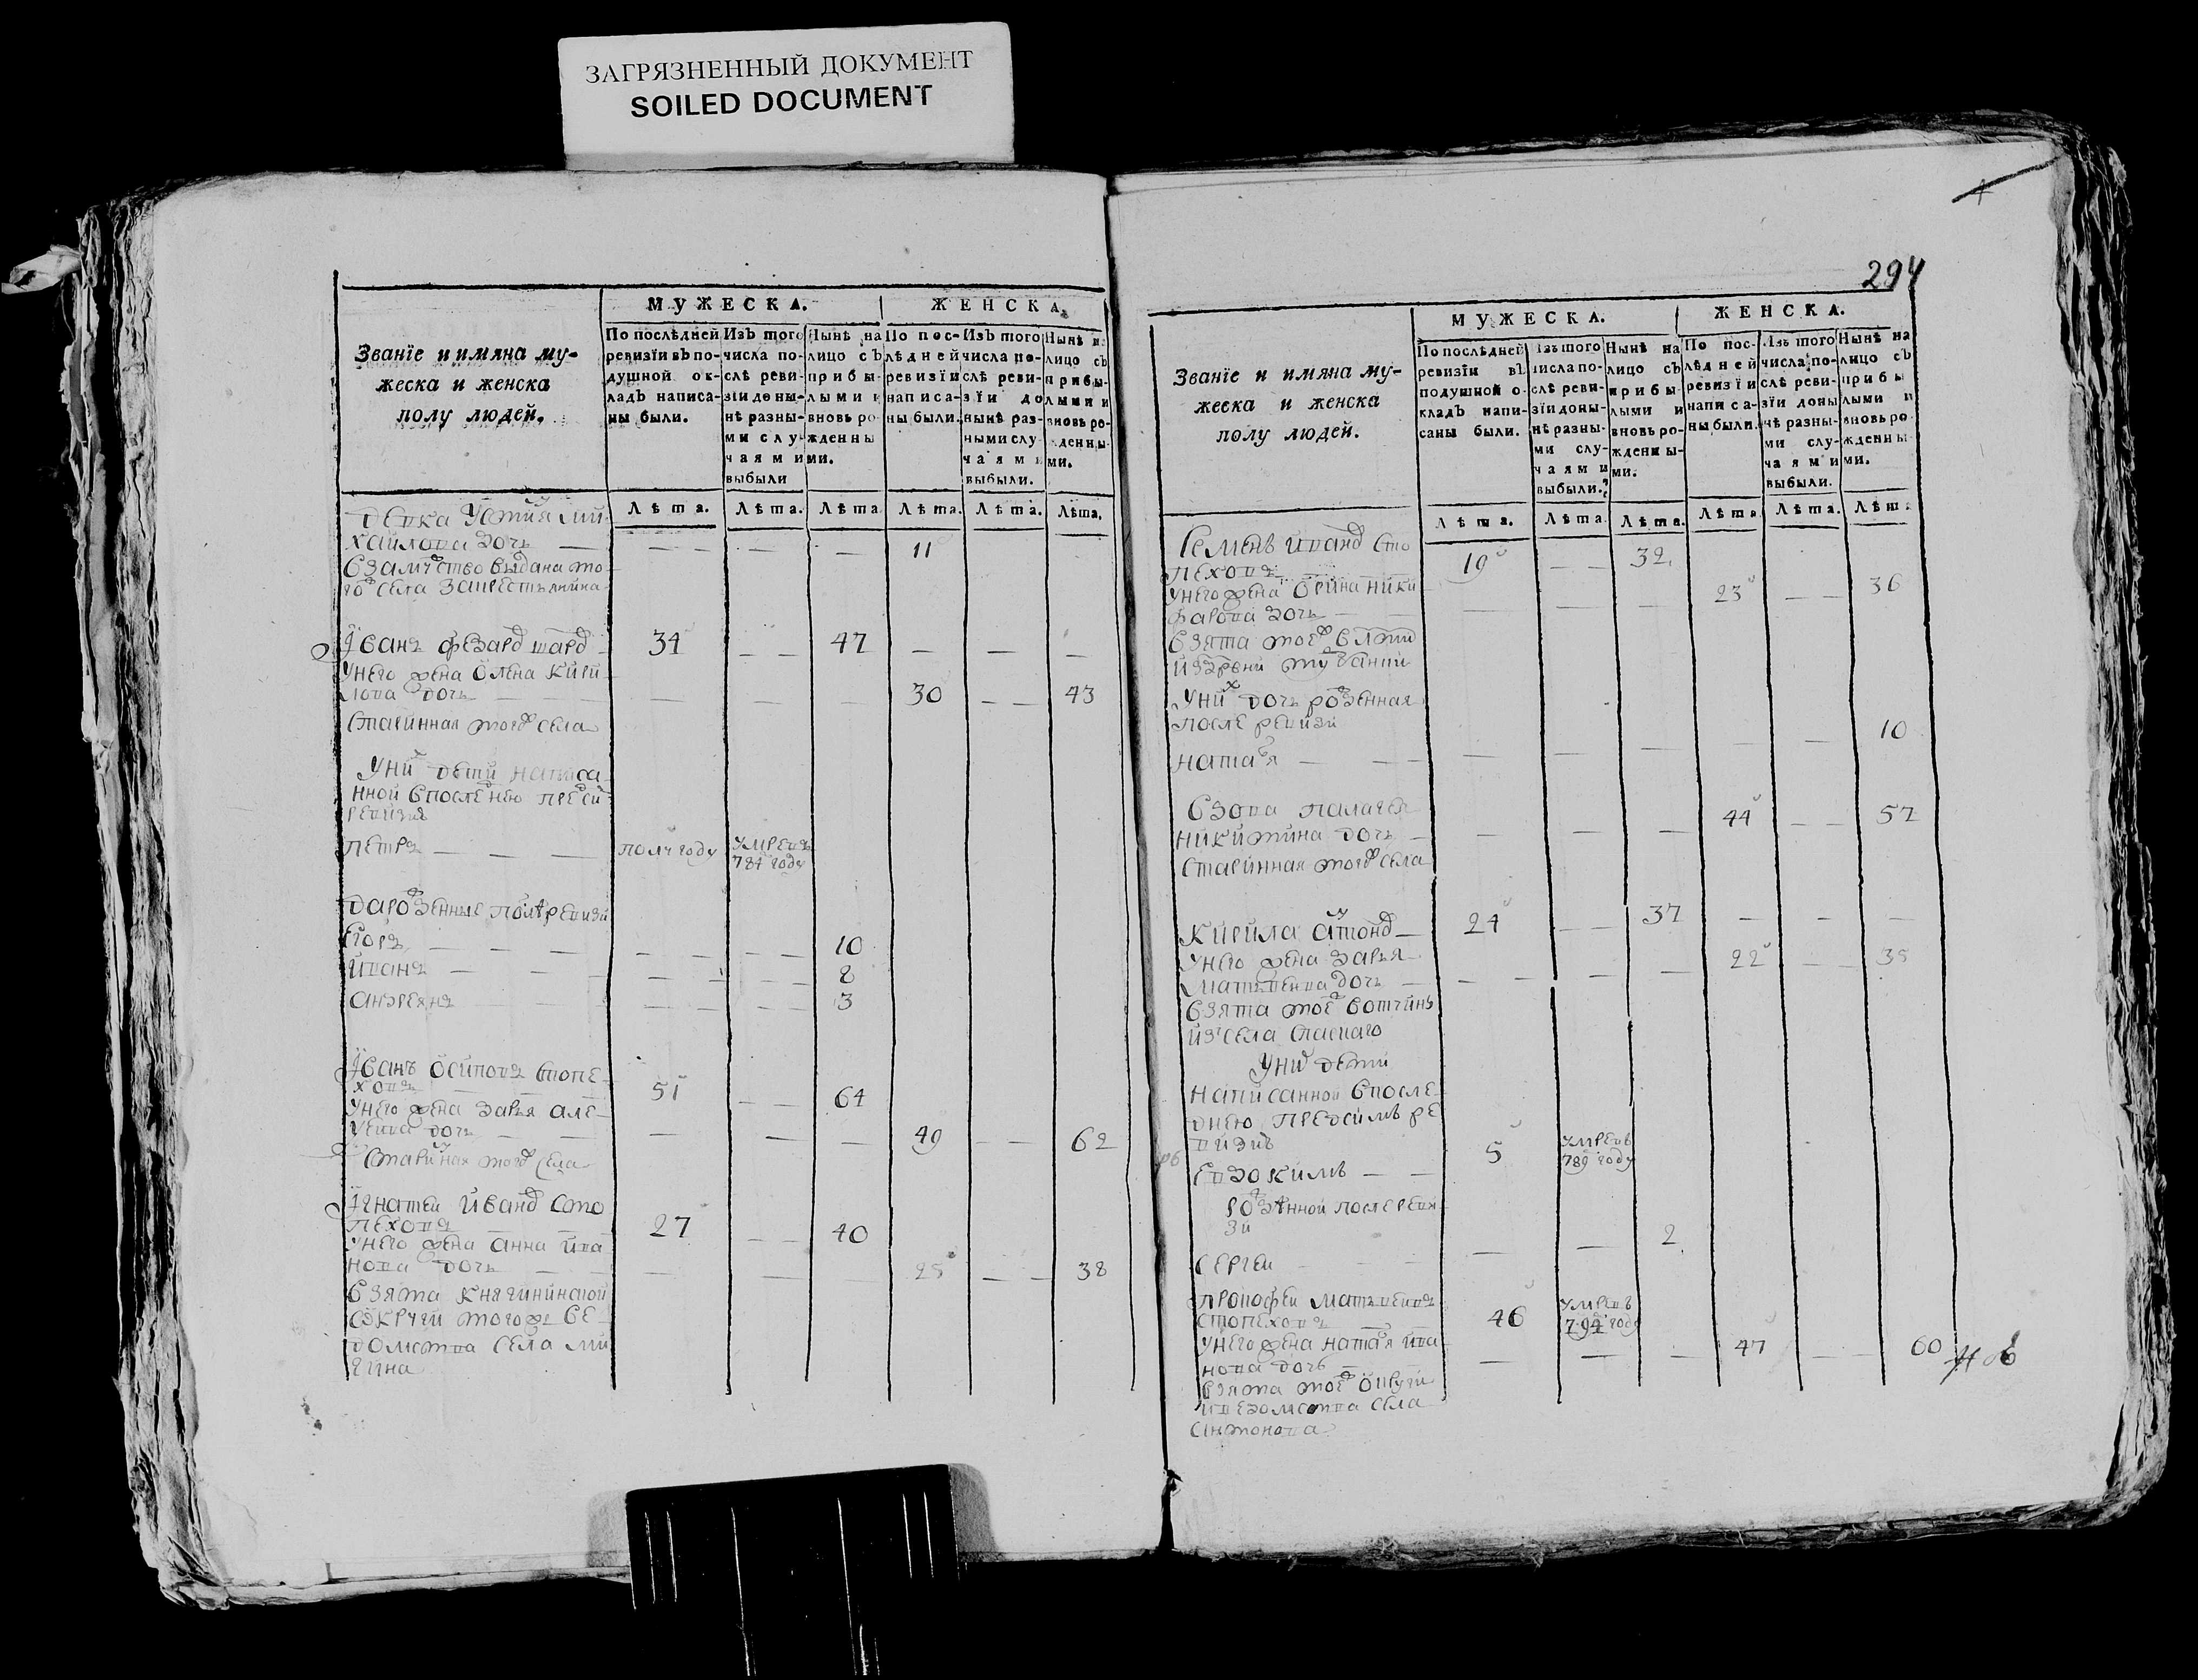 ЗАГРЯЗНЕННЫЙ ДОКУМЕНТ
SOILED DOCUMENT
Званїе и имяна му-
жеска и женска
полу людей.
МУЖЕСКА.
ЖЕНСКА.
По послѣдней
ревизїи въ по-
душной ок-
ладъ написа-
ны были.
Изъ того
числа по-
слѣ реви-
зїи доны-
нѣ разны-
ми слу-
чаями
выбыли
Нынѣ на
лицо съ
прибы-
лыми и
вновь ро-
жденны
ми.
По пос-
лѣдней
ревизїи
написа-
ны были.
Изъ того
числа по-
слѣ реви-
зїи до
нынѣ раз-
ными слу-
чаями
выбыли.
Нынѣ н
лицо съ
прибы-
лыми и
вновь ро-
денны-
ми.
Лѣта. Лѣта. Лѣта Лѣта. Лѣта. Лѣта.
девка устиня ми
хайлова дочь — — — — 11
взамуство выдана то
го села закрестьянина
Їванъ федоро — 34 — — 47 — — —
унего жена олена кири
лова дочь — — — — 30 — — 43
старинная того села
уни дети написа
нной впоследнею пресй
ревизия
петръ — — — полугоду умревъ
784 году
дарожденные после ревизи
Егоръ — — — — — — 10
иванъ — — — — — — 8
андреянъ — — — — 3
Їванъ осиповъ стопе
ховъ 51 — — 64
унего жена дарья але
дочь — — — — — 49 — — 62
старинная того села
Їгнатеи ивано сто
пеховъ 27 — — 40
унего жена анна ива
нова дочь — — — — 25 — — 38
взята княгининской
округи тогож ве
домства села ми
гина
4
294
Званїе и имяна му-
жеска и женска
полу людей.
МУЖЕСКА.
ЖЕНСКА.
По послѣдней
ревизїи въ
подушной о-
кладъ напи-
саны были.
Изъ того
числа по-
слѣ реви-
зїи доны-
нѣ разны-
ми слу-
чаями
выбыли.
Нынѣ на
лицо съ
прибы-
лыми и
вновь ро-
жденны-
ми.
По пос-
лѣдней
ревизїи
написа-
ны были.
Изъ того
числа по-
слѣ реви-
зїи доны
нѣ разны-
ми слу-
чаями
выбыли.
Нынѣ на
лицо съ
прибы
лыми и
вновь ро-
жденны-
ми.
Лѣта. Лѣта Лѣта. Лѣта Лѣта. Лѣта
Семенъ ивано сто
пеховъ 19 — — 32
унего жена орина ники
фарова дочь — — — — 23 — — 36
взята тоеж
уни дочь роженная
после ревизи
ната я — — — — — — 10
вдова палагея
никитина дочь — — — — 44 — — 57
старинная того села
кирила 24 — — 37 — — —
унего жена дарья
матвевна дочь — — — — 22 — — 35
взята тое вотчинъ
изсела спаскаго
уни дети
написанной впосле
днею предсимъ ре
визиъ
евдокимъ — — 5 умревъ
789 году
рожденной после реви
зи
сергеи — — 2
прокофеи матвеевъ
стопеховъ 46 умревъ
794 году
унего жена ната я ива
нова дочь — — — — 47 — — 60
взята тоеж округи
иведомства села
антонова